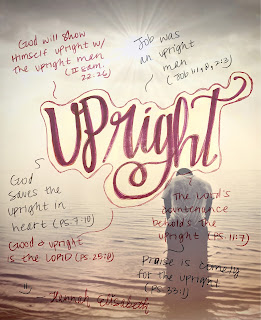 God will show
Himself upright w/
the upright man
(II Sam.
22:26)
Job was
an upright
man
(Job 1:1, 8, 2:3)
upright
God
saves the
upright in
heart (PS. 7:10)
Good & upright
is the LORD (PS. 25:8)
The Lord's
countenance
behold's the
upright (PS. 11:7)
Praise is comely
for the upright
(PS. 33:1)
Hannah Elisabeth